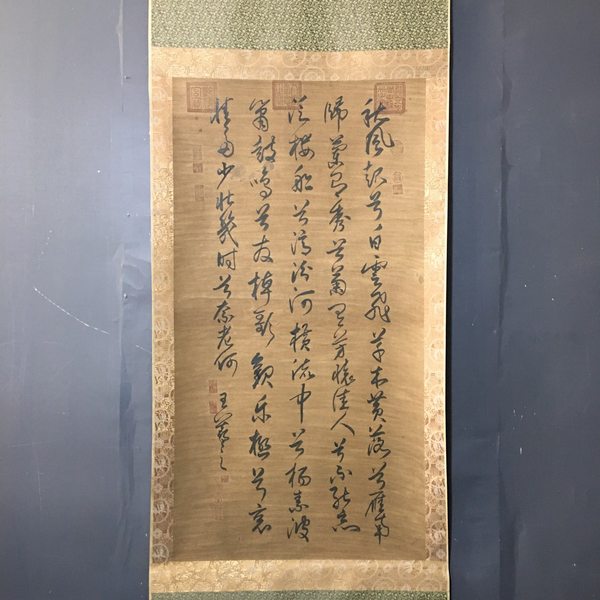 秋風起兮白雲飛草木黃落兮雁南
歸蘭有秀兮菊有芳懷佳人兮不能忘
泛樓船兮濟汾河橫流中兮揚素波
簫鼓鳴兮發棹歌歡樂極兮哀
情多少壯幾時兮奈老何
王羲之